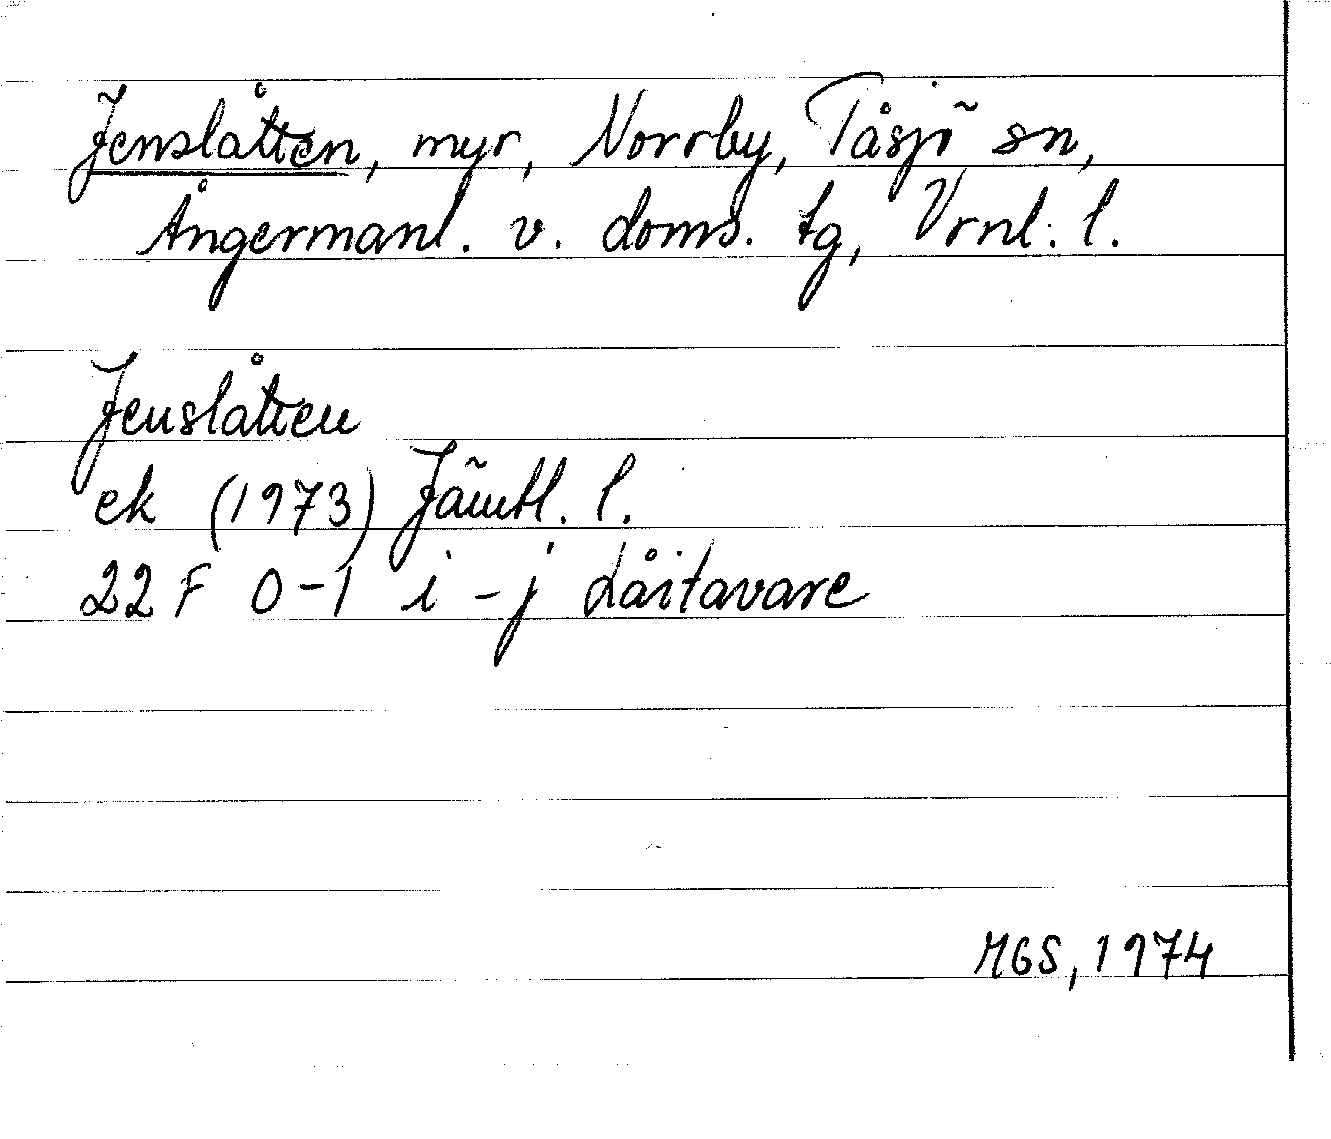 Jenslåtten, myr, Norrby, Tåsjö sn,
Ångermanl. v. doms. tg, Vrnl. l.
Jenslåtten
ek (1973) Jämtl. l.
22 F 0-1 i-j Låitavare
MGS, 1974